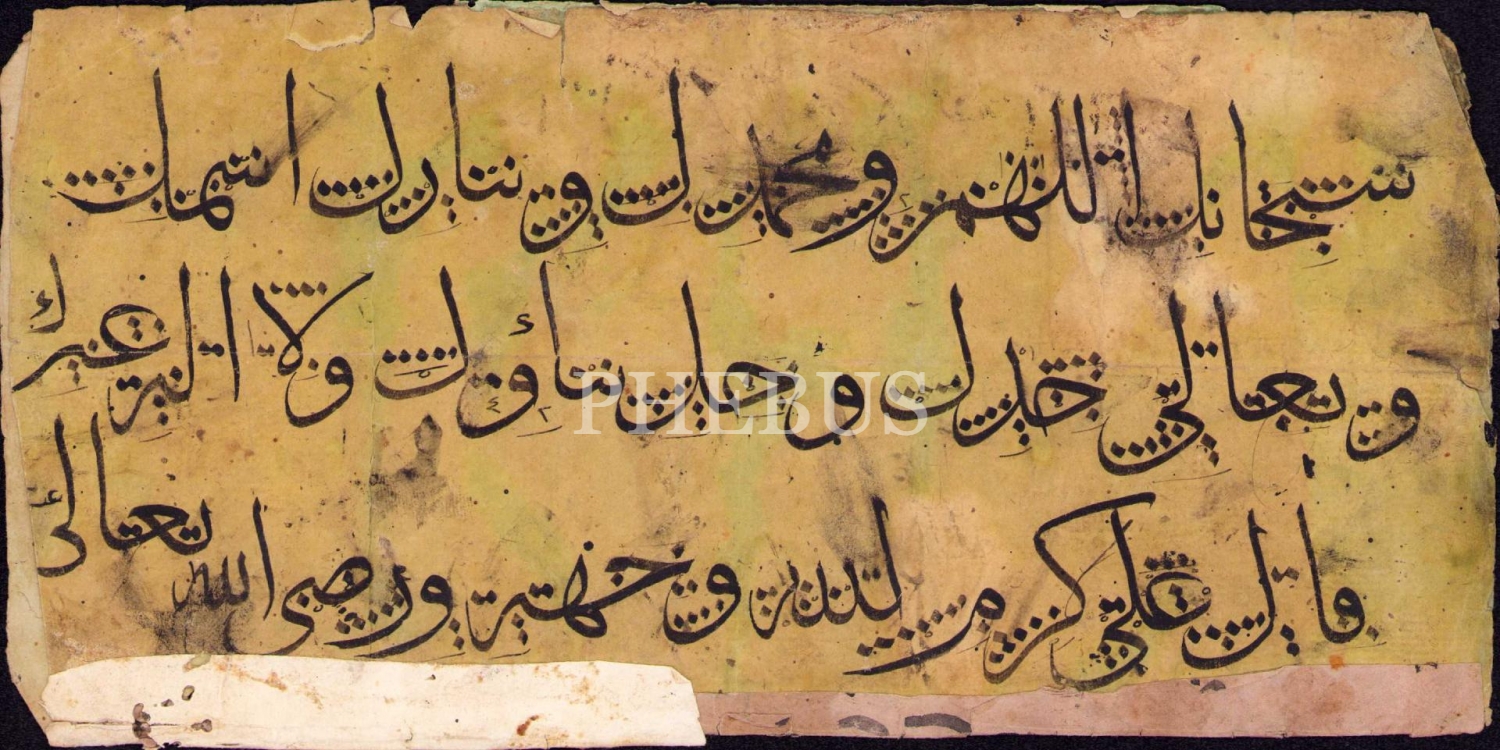 سبحانك اللهم وبحمدك وتبارك اسمك
وتعالى جدك وجل ثناؤك ولا اله غيرك
قال علي كرم الله وجهه ورضي الله تعالى
PHEBUS